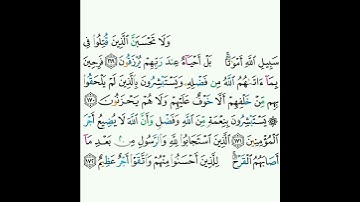 ولا تحسبن الذين قتلوا في
سبيل الله أموتا بل أحياء عند ربهم يرزقون ١٦٩ فرحين
بما ءاتىهم الله من فضله ويستبشرون بالذين لم يلحقوا
بهم من خلفهم ألا خوف عليهم ولا هم يحزنون ١٧٠
۞ يستبشرون بنعمة من الله وفضل وأن الله لا يضيع أجر
المؤمنين ١٧١ الذين استجابوا لله والرسول من بعد ما
أصابهم القرح للذين أحسنوا منهم واتقوا أجر عظيم ١٧٢